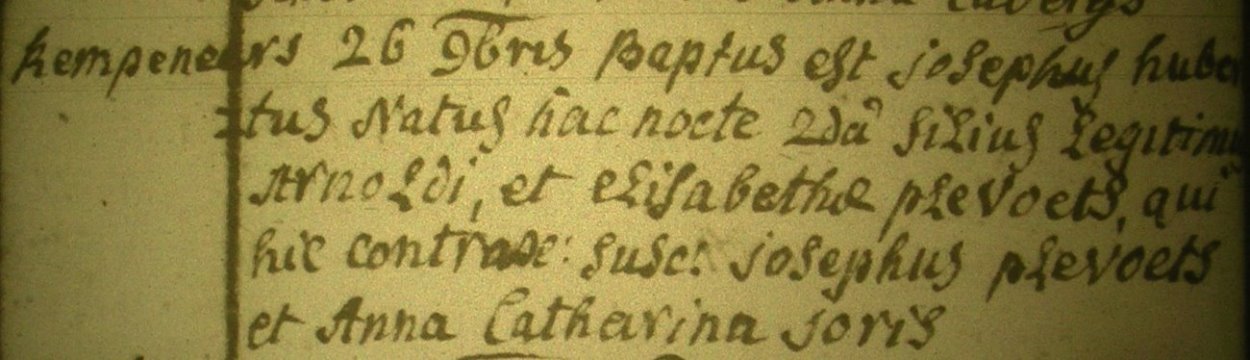 Kempeneers 26 9bris Baptus est josephus huber
=tus Natus hac nocte 2dâ filius Legitimus
Arnoldi, et Elisabethæ plevoets, qui
hic contrax: susc: josephus plevoets
et Anna Catharina joris